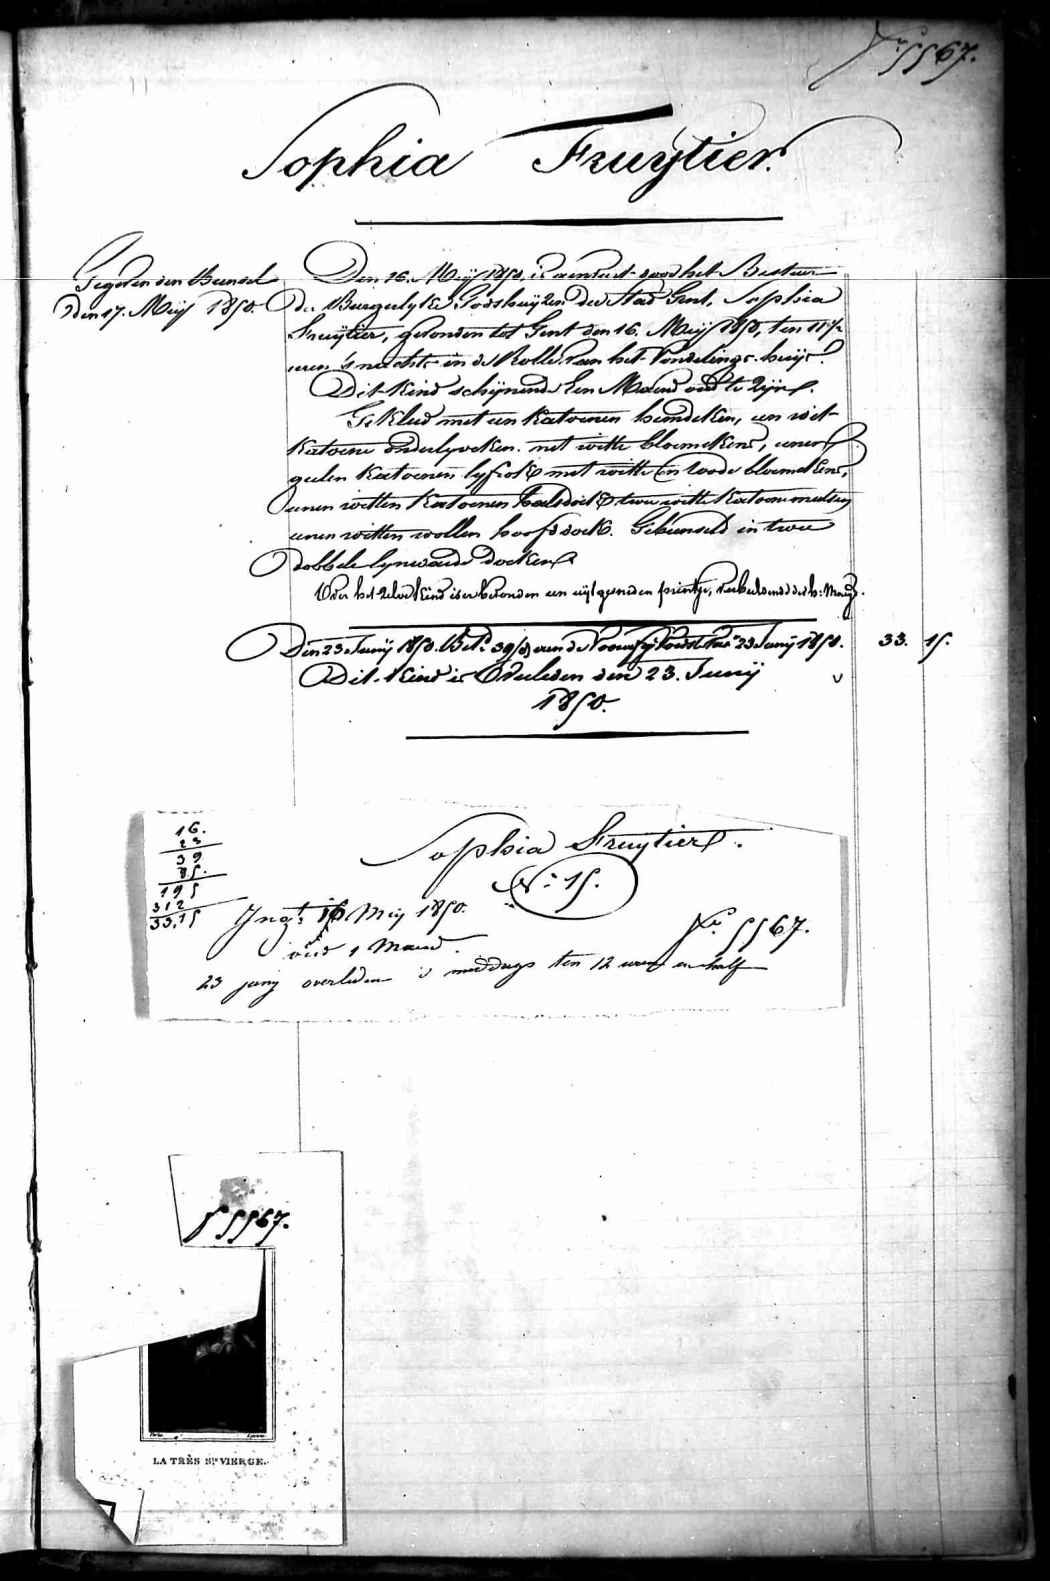 N.º 5567.
Sophia Fruytier.
Gegeven den Bunsel
den 17. Meij 1850.
Den 16. Meij 1850. is aenveert door het Bestuer
der Burgerlyke Godshuyzen der Stad Gent, Sophia
Fruijtier, gevonden tot Gent den 16. Meij 1850, ten 11 1/2
uren 's nachts in de Rolle van het Vondelings-huijs.
Dit Kind schijnende een Maend oud te zijn.
Gekleed met een Katoenen hemdeken, een
Katoene onderlyveken met witte bloemekens, eenen
geelen Katoenen lyfrok met witte en roode bloemekens,
eenen witten Katoenen halsdoek, twee witte Katoene mutsen
eenen witten wollen hoofddoek. Gebunseld in twee
dobbele lynwaede doeken
Over het zelve Kind is er bevonden een uijtgesneden printje, verbeeldende de h: Maegd.
Den 23 Junij 1850. Bet. 39 van de tot den 23 Junij 1850. 33. 15.
Dit Kind is Overleden den 23. Junij
1850.
16.
23
39
85.
195
312
33,15
Sophia Fruytier.
N.º 15.
Ing.t 16 Mey 1850.
oud 1 Maend.
N.º 5567.
23 juny overleden 's middags ten 12 uren en half
5567.
LA TRÈS Ste VIERGE.